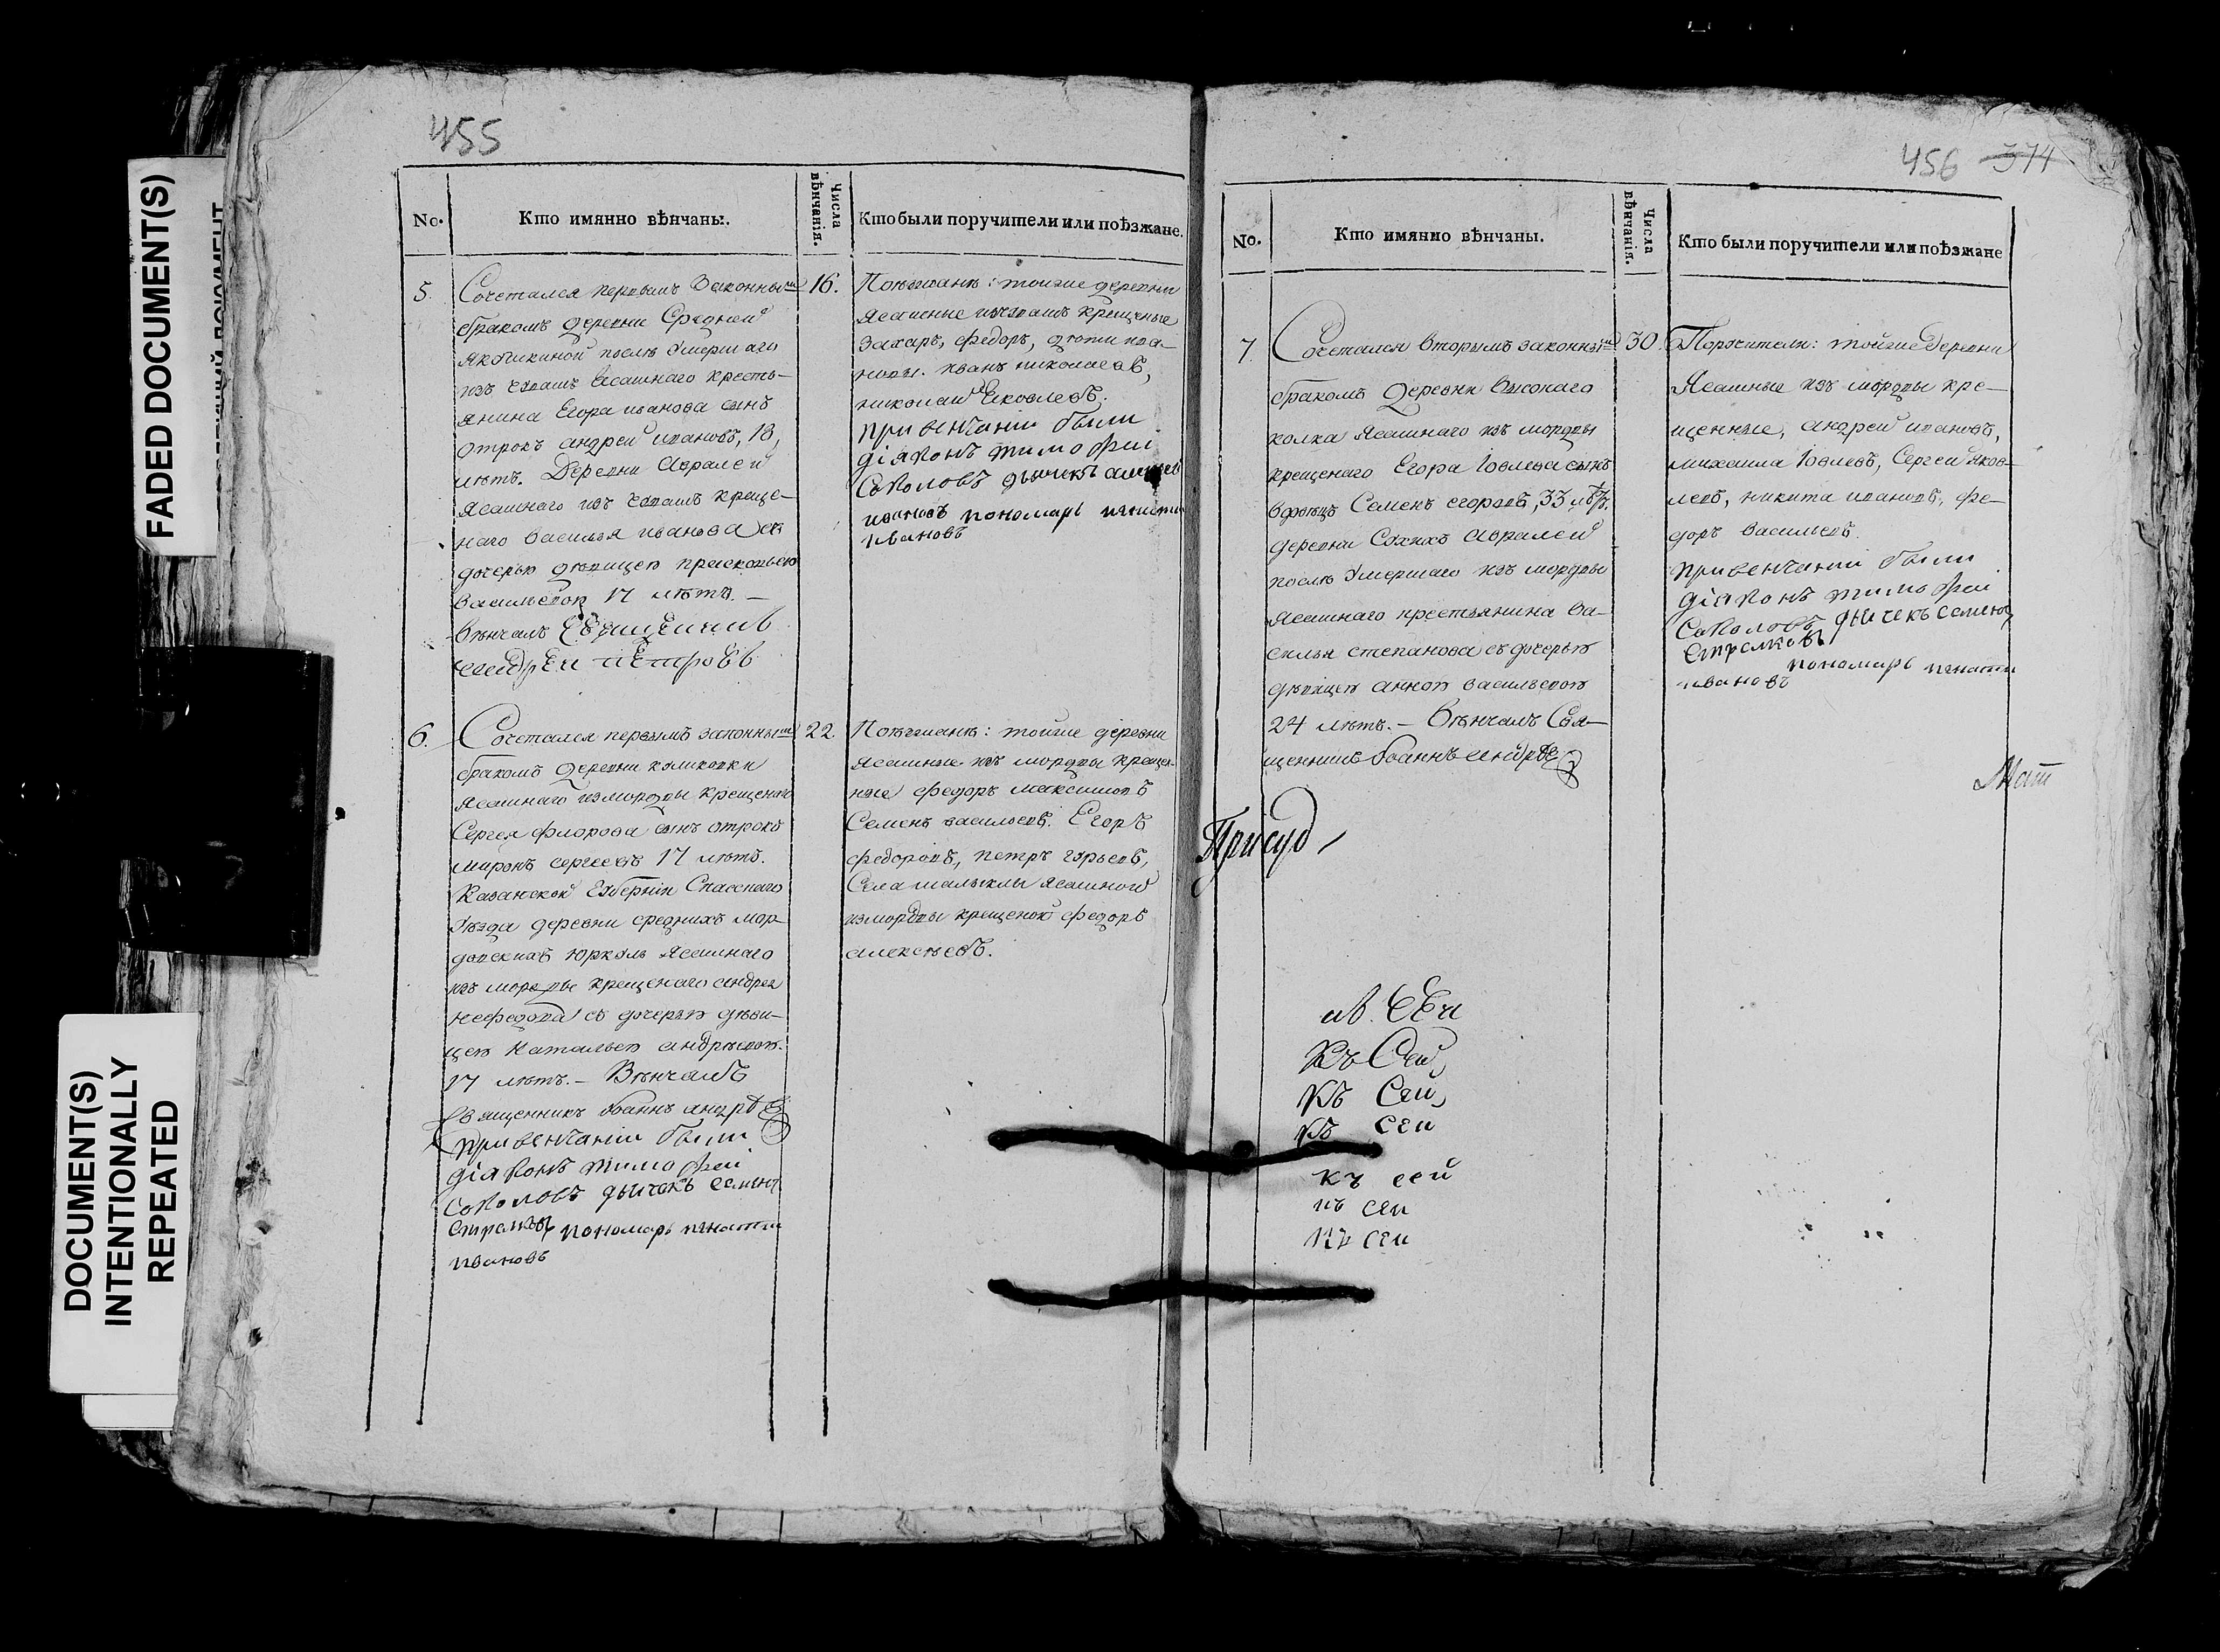 455
No.
Кто имянно вѣнчаны.
Числа вѣнчанія.
Кто были поручители или поѣзжане.
5.
Сочетался первымъ законнымъ
бракомъ деревни Средней
Якушкиной послѣ умершаго
изъ чувашъ ясашнаго кресть-
янина Егора иванова сынъ
отрокъ андрей ивановъ, 18,
лѣтъ. Деревни Авралей
ясашнаго изъ чувашъ креще-
наго василья иванова съ
дочерью дѣвицею прасковьею
васильевою 17 лѣтъ. —
вѣнчалъ Священникъ
андрей петровъ
16.
Поѣзжанѣ: тойже деревни
ясашные изчувашъ крещеные
захаръ, федоръ, дѣти ива-
новы. иванъ николаевъ,
николай Яковлевъ.
при венчаніи были
діяконъ тимофей
Соколовъ дьячекъ
ивановъ пономарь игнати
ивановъ
6.
Сочетался первымъ законнымъ
бракомъ деревни
ясашнаго измордвы крещенаго
Сергея флорова сынъ отрокъ
миронъ сергеевъ 17 лѣтъ.
Казанской Губерніи Спасскаго
уѣзда деревни среднихъ мор-
довскихъ юркуль ясашнаго
изъ мордвы крещенаго андрея
нефедова съ дочерью дѣви-
цею Натальею андрѣевою.
17 лѣтъ. — Вѣнчалъ
священникъ Іоаннъ андрѣевъ
при венчаніи были
діяконъ тимофей
Соколовъ дьячекъ семенъ
Стрелковъ пономарь игнати
ивановъ
22.
Поѣзжанѣ: тойже деревни
ясашные изъ мордвы крещен-
ные федоръ максимовъ
Семенъ васильевъ. Егоръ
федоровъ, петръ гурьевъ,
Села шалыклы ясашной
измордвы крещеной федоръ
алексѣевъ.
456 374
No.
Кто имянно вѣнчаны.
Числа вѣнчанія.
Кто были поручители или поѣзжане
7.
Сочетался вторымъ законнымъ
бракомъ Деревни высокаго
колка ясашнаго изъ мордвы
крещенаго Егора Іовлева сынъ
вдовецъ Семенъ егоровъ, 33 лѣтъ.
деревни Сухихъ Авралей
послѣ умершаго изъ мордвы
ясашнаго крестьянина ва-
силья степанова съ дочерью
дѣвицею анною васильевою
24 лѣтъ. — Вѣнчалъ Свя-
щенникъ Іоаннъ андрѣевъ
30.
Поручители: тойже деревни
Ясашные изъ мордвы кре-
щенные, андрей ивановъ,
михаила Іовлевъ, Сергей яков-
левъ, никита ивановъ, фе-
доръ васильевъ.
при венчаніи были
діяконъ тимофей
Соколовъ дьячекъ семенъ
Стрелковъ
пономарь игнати
ивановъ
Присуд
Къ Сей
Къ Сей
Къ сеи
къ сей
къ сеи
Къ сеи
FADED DOCUMENT(S)
DOCUMENT(S)
INTENTIONALLY
REPEATED